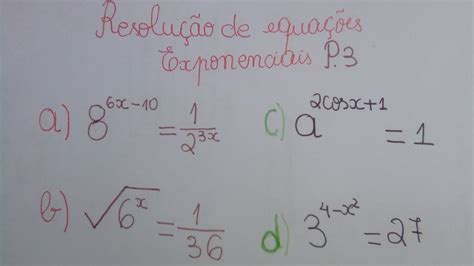 Resolução de equações
Exponenciais P.3
a) 8^{6x-10} = \frac{1}{2^{3x}}
c) a^{2cosx+1} = 1
b) \sqrt{6^x} = \frac{1}{36}
d) 3^{4-x^2} = 27